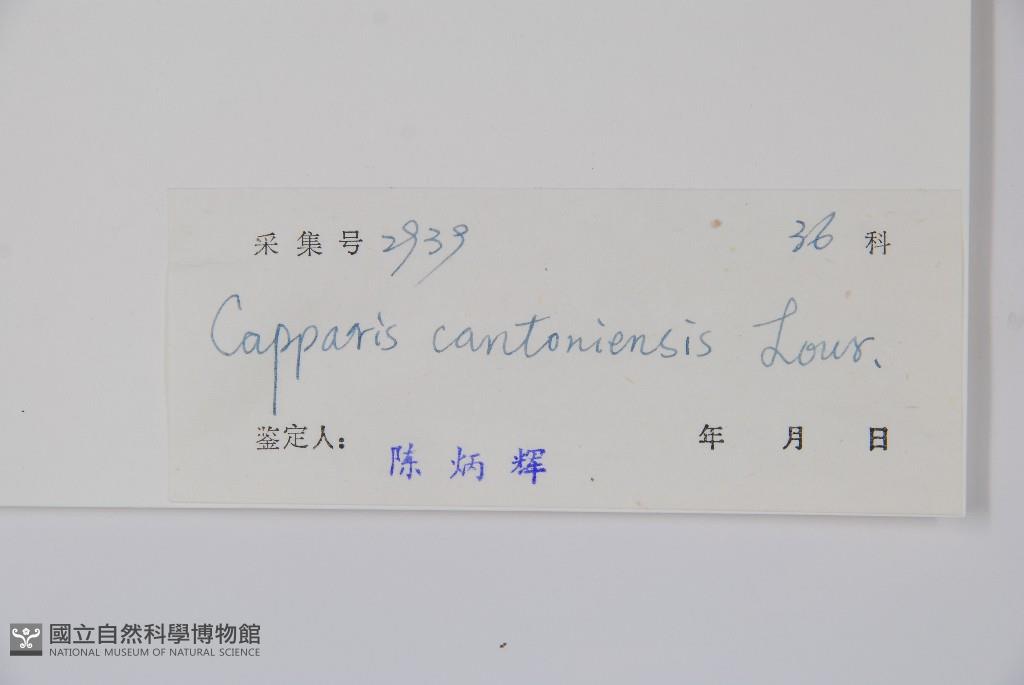 采集号 2939 36 科
Capparis cantoniensis Lour.
鉴定人: 陈炳辉 年 月 日
國立自然科學博物館
NATIONAL MUSEUM OF NATURAL SCIENCE